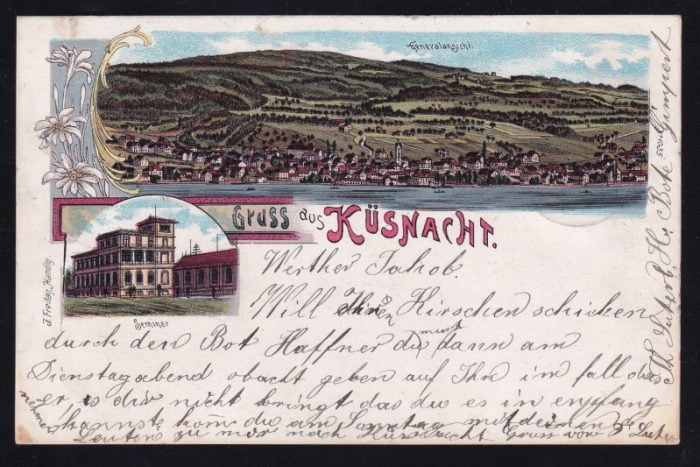 Generalansicht.
Gruss aus KÜSNACHT.
J. Freitag, Handlg.
Seminar
Werther Jakob.
Will Ihren Hirschen schicken
durch den Bot Haffner du must dann am
Dienstagabend obacht geben auf Ihn im fall das
er es dir nicht bringt das du es in empfang
nehmen kannste kom du am Sonntag mit deinen
Leuten zu mir nach Küssnacht Gruss von
H. Bote Gimpert